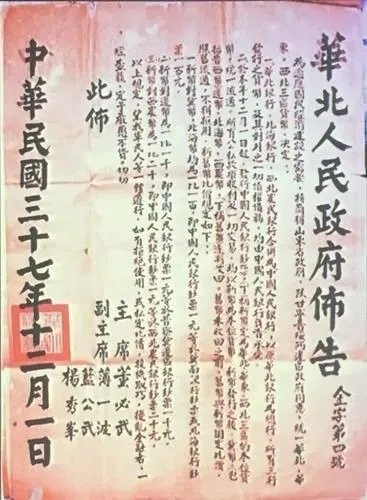 華北人民政府佈告
金字第四號
為適應國民經濟建設之需要，特商得山東省政府，陝甘寧晉綏兩邊區政府同意，統一華北、華
東、西北三區貨幣。決定：
一、華北銀行、北海銀行、西北農民銀行合併為中國人民銀行，以原華北銀行為總行。所有三行
發行之貨幣，及其對外之一切債權債務，均由中國人民銀行負責承受。
二、於本年十二月一日起，發行中國人民銀行鈔票（下稱新幣），定為華北、華東、西北三區的本位貨
幣，統一流通。所有公私款項收付及一切交易，均以新幣為本位貨幣。新幣發行之後，冀幣（包
括魯西幣）、邊幣、北海幣、西農幣（下稱舊幣）逐漸收回。舊幣未收回之前，舊幣與新幣固定比價，
照舊流通，不得拒用。新舊幣比價規定如下：
一、新幣對冀幣、北海幣均為一比一百，即中國人民銀行鈔票一元等於冀南銀行鈔票或北海銀行鈔
票一百元。
二、新幣對邊幣為一比一千，即中國人民銀行鈔票一元等於晉察冀邊區銀行鈔票一千元。
三、新幣對西農幣為一比二千，即中國人民銀行鈔票一元等於西北農民銀行鈔票二千元。
以上規定，望我軍民人等一體遵行。如有拒絕使用，或私定比價，投機取巧，擾亂金融者，一
經查獲，定予嚴懲不貸。切切
此佈
主席 董必武
副主席 薄一波
藍公武
楊秀峯
中華民國三十七年十二月一日